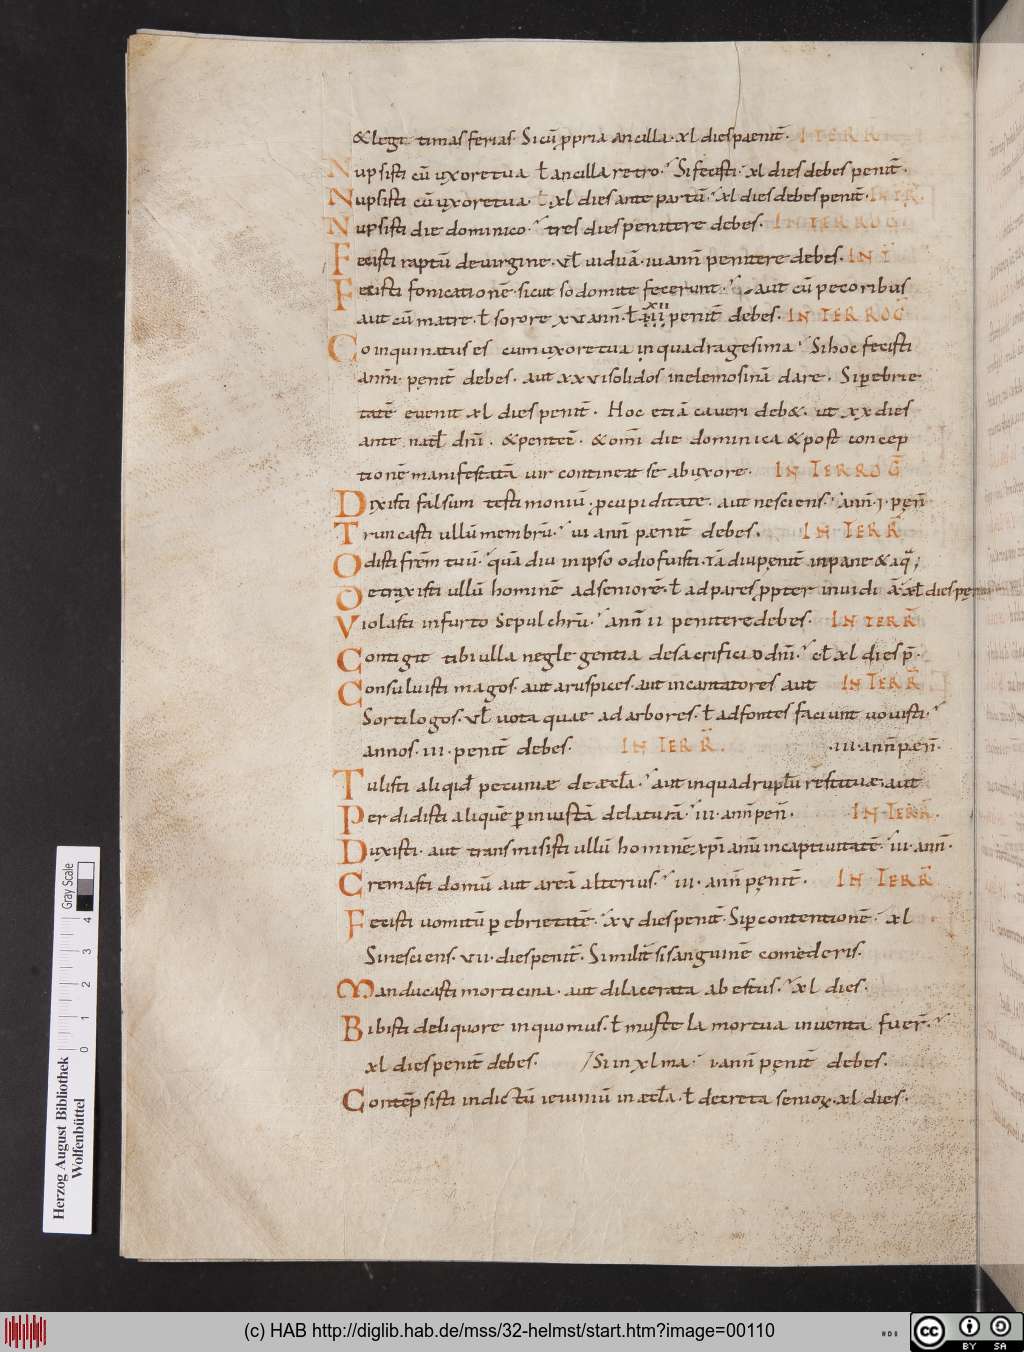 & legitimas ferias. Si cū ppria ancilla. xl dies paenit̄. INTERR
Nupsisti cū uxore tua ł ancilla retro. Si fecisti. xl dies debes penit̄.
Nupsisti cū uxore tua. ł xl dies ante partū. xl dies debes penit̄. INTR̄.
Nupsisti die dominico. tres dies penitere debes. INTERROG.
Fecisti raptū de uirgine. vł uiduā. iii ann̄ penitere debes. INT
Fecisti fornicationē. sicut sodomite fecerunt. aut cū pecoribus
aut cū matre. ł sorore xv ann̄. ł xii penit̄ debes. INTERROG
Coinquinatus es cum uxore tua in quadragesima. Si hoc fecisti
ann̄. penit̄ debes. aut xxvi solidos in elemosinā dare. Si p ebrie
tatē euenit xl dies penit̄. Hoc etiā caueri deb&. ut xx dies
ante natł dn̄i. & pentec̄. & om̄i die dominica & post concep
tionē manifestatā uir contineat se ab uxore. INTERROḠ
Dixisti falsum testimoniū p cupiditate. aut nesciens. ann̄. i. pen̄
Truncasti ullū membrū. iii ann̄ paenit̄ debes. INTERR̄
Odisti frēm tuū. quā diu in ipso odio fuisti. tā diu penit̄ in pane & aq̄;
Detraxisti ullū hominē ad seniorē. ł ad pares ppter inuidiā. xł dies pe
Violasti in furto sepulchrū. ann̄ ii penitere debes. INTERR̄
Contigit tibi ulla neglegentia de sacrificio dn̄i. xl dies p̄.
Consuluisti magos. aut aruspices. aut incantatores aut INTERR̄
Sortilogos. vł uota quae ad arbores. ł ad fontes faciunt uouisti.
annos. iii. penit̄ debes. INTERR̄. .iii. ann̄ paen̄.
Tulisti aliqid pecuniae de aecła. aut in quadruplū restituae. aut
Perdidisti aliquē p iniustā delaturā. iii. ann̄ pen̄. INTERR̄.
Duxisti. aut transmisisti ullū hominē xpianū in captiuitatē. iii. ann̄.
Cremasti domū aut areā alterius. iii. ann̄ penit̄. INTERR̄
Fecisti uomitū p ebrietatē. xv dies penit̄. Si p contentionē. xl
Si nesciens. vii. dies penit̄. Similit̄ si sanguinē comederis.
Manducasti morticina. aut dilacerata a bestiis. xl dies.
Bibisti de liquore in quo mus. ł mustela mortua inuenta fuer̄.
xl dies penit̄ debes. /Si in xlma. i. ann̄ penit̄ debes.
Contēpsisti indictū ieiuniū in aecła. ł decreta senioꝝ. xl dies.
Herzog August Bibliothek
Wolfenbüttel
0 1 2 3 4
Gray Scale
(c) HAB http://diglib.hab.de/mss/32-helmst/start.htm?image=00110
cc BY SA